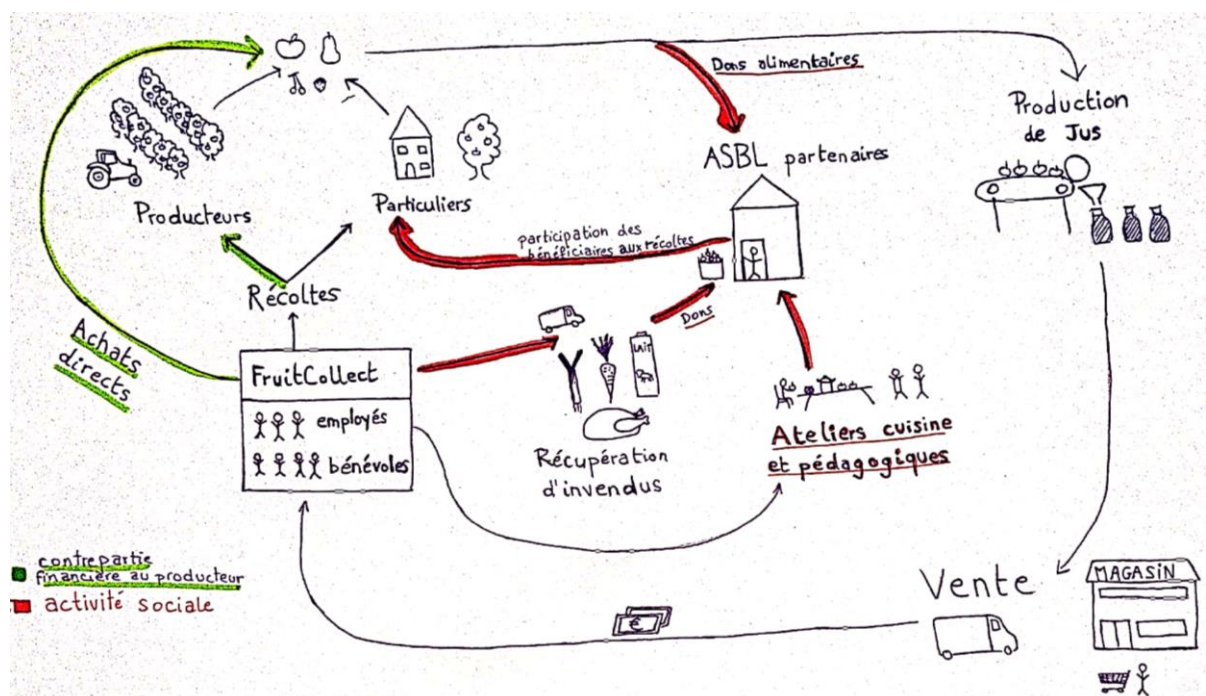 Dons alimentaires
Production
de Jus
ASBL partenaires
Producteurs
Particuliers
participation des
bénéficiaires aux récoltes
Récoltes
Dons
LAIT
Achats
directs
FruitCollect
employés
bénévoles
Récupération
d'invendus
Ateliers cuisine
et pédagogiques
contrepartie
financière au producteur
activité sociale
Vente
MAGASIN
€